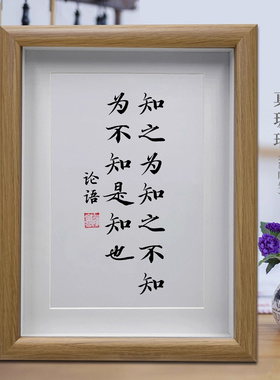 知之为知之不知
为不知是知也
论语